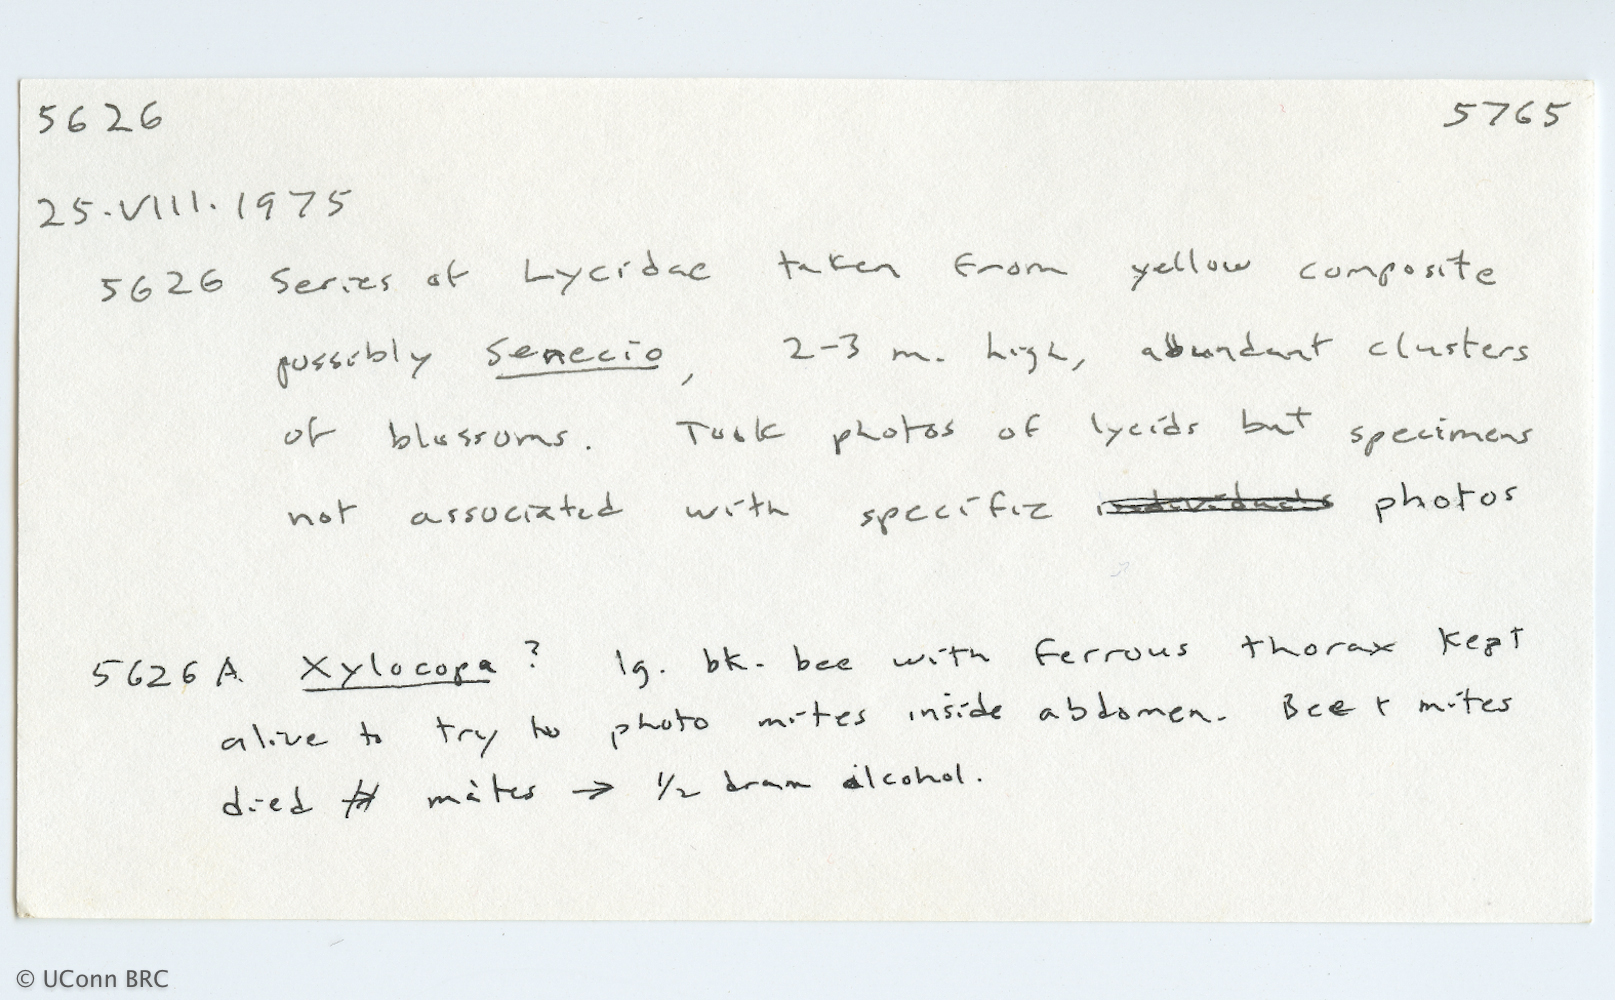 5626 5765
25.VIII.1975
5626 Series of Lycidae taken from yellow composite
possibly Senecio, 2-3 m. high, abundant clusters
of blossoms. Took photos of lycids but specimens
not associated with specific individuals photos
5626A Xylocopa? lg. bk. bee with ferrous thorax kept
alive to try to photo mites inside abdomen. Bee + mites
died mites → 1/2 dram alcohol.
© UConn BRC